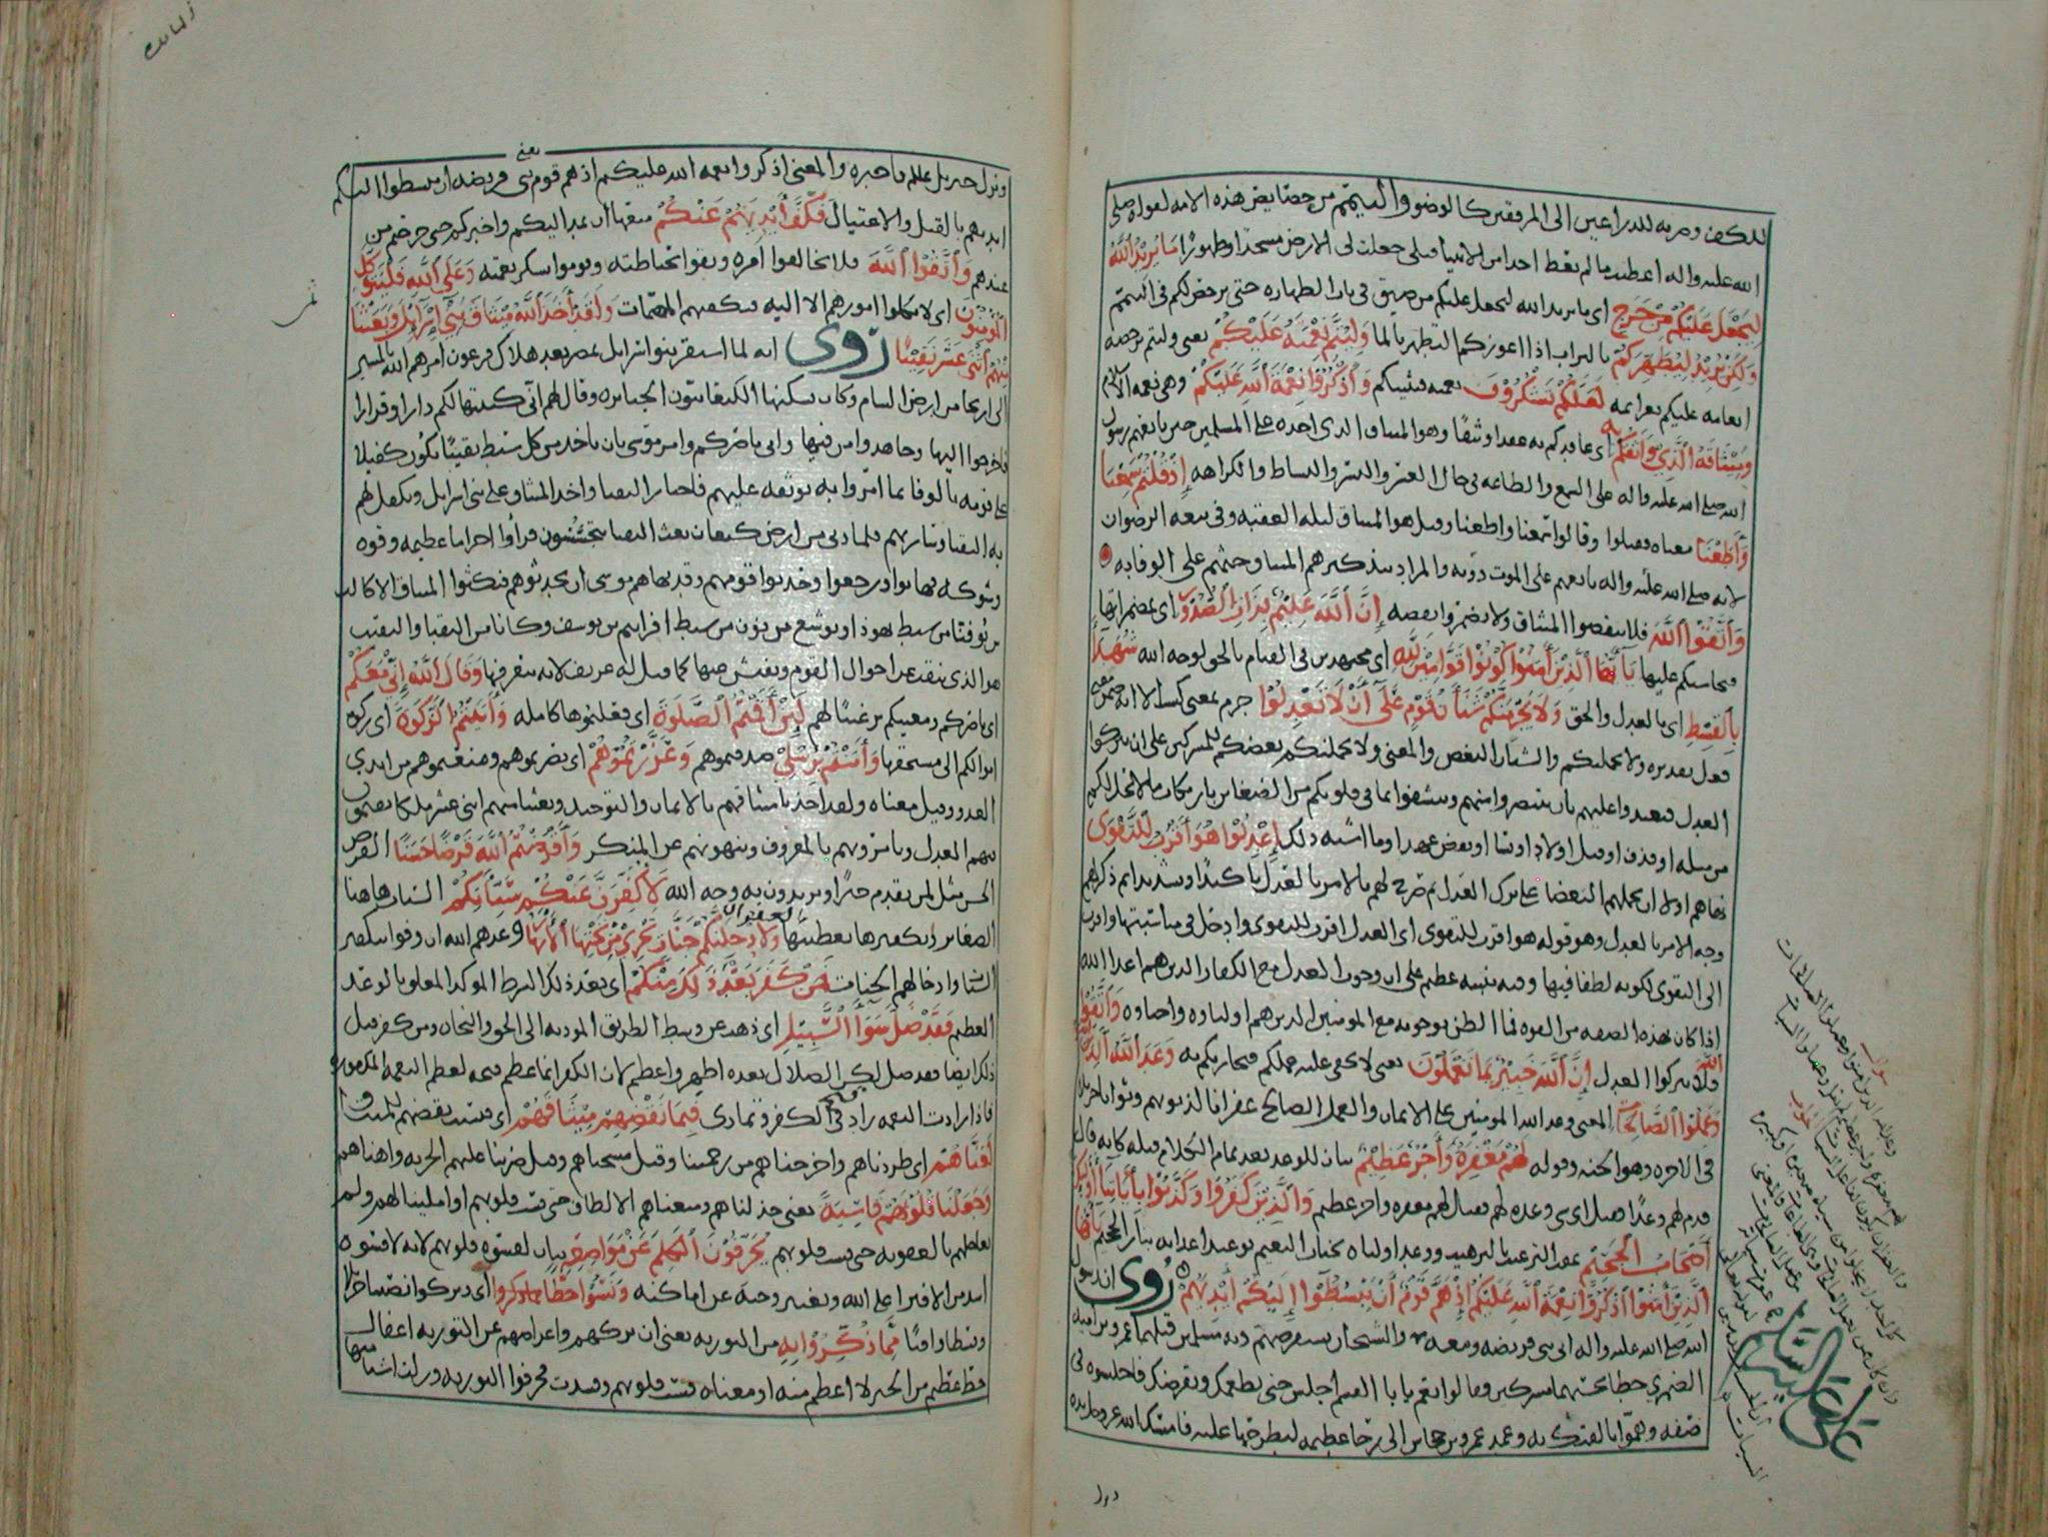 للكفين وضربه للذراعين الى المرفقين كالوضو والتيمم من خصايص هذه الامه لقوله صلى
الله عليه واله اعطيت ما لم يعط احد من الانبيا قبلي جعلت لي الارض مسجدا وطهورا مَا يُرِيدُ اللَّهُ
لِيَجْعَلَ عَلَيْكُمْ مِنْ حَرَجٍ اى ما يريد الله ليجعل عليكم من ضيق في باب الطهاره حتى يرخص لكم في التيمم
وَلَكِنْ يُرِيدُ لِيُطَهِّرَكُمْ بالتراب اذا اعوزكم التطهر بالما وَلِيُتِمَّ نِعْمَتَهُ عَلَيْكُمْ يعنى وليتم برخصه
انعامه عليكم بعزائمه لَعَلَّكُمْ تَشْكُرُونَ نعمته فيثيبكم وَاذْكُرُوا نِعْمَةَ اللَّهِ عَلَيْكُمْ وهى نعمه الاسلام
وَمِيثَاقَهُ الَّذِي وَاثَقَكُمْ بِهِ اى عاقدكم به عقدا وثيقا وهو الميثاق الذى اخذه على المسلمين حين بايعهم رسول
الله صلى الله عليه واله على السمع والطاعه في حال العسر واليسر والنشاط والكراهه إِذْ قُلْتُمْ سَمِعْنَا
وَأَطَعْنَا معناه فقبلوا وقالوا سمعنا واطعنا وقيل هو الميثاق ليله العقبه وفي بيعه الرضوان
لانه صلى الله عليه واله بايعهم على الموت دونه والمراد بتذكيرهم الميثاق وحثهم على الوفا به
وَاتَّقُوا اللَّهَ فلا تنقضوا الميثاق ولا تضمروا نقضه إِنَّ اللَّهَ عَلِيمٌ بِذَاتِ الصُّدُورِ اى بمضمراتها
فيحاسبكم عليها يَا أَيُّهَا الَّذِينَ آمَنُوا كُونُوا قَوَّامِينَ لِلَّهِ اى مجتهدين في القيام بالحق لوجه الله شُهَدَاءَ
بِالْقِسْطِ اى بالعدل والحق وَلَا يَجْرِمَنَّكُمْ شَنَآنُ قَوْمٍ عَلَى أَنْ لَا تَعْدِلُوا جرم بمعنى كسب الا انه ضمن معنى
فعل تقديره ولا يحملنكم والشنآن البغض والمعنى ولا يحملنكم بغضكم للمشركين على ان تتركوا
العدل فتعتدوا عليهم بان تنتصروا منهم وتتشفوا مما في قلوبكم من الضغائن بارتكاب ما لا يحل لكم
من مثله او قذف او قتل اولاد او نسا او نقض عهد او ما اشبه ذلك اعْدِلُوا هُوَ أَقْرَبُ لِلتَّقْوَى
نهاهم اولا ان يحملهم البغضا على ترك العدل ثم صرح لهم بالامر بالعدل تاكيدا وتشديدا ثم ذكر لهم
وجه الامر بالعدل وهو قوله هو اقرب للتقوى اى العدل اقرب للتقوى وادخل في مناسبتها واقرب
الى التقوى لكونه لطفا فيها وفيه تنبيه عظيم على ان وجوب العدل مع الكفار الذين هم اعدا الله
اذا كان بهذه الصفه من القوه فما الظن بوجوبه مع المومنين الذين هم اولياوه واحباوه وَاتَّقُوا
اللَّهَ فلا تتركوا العدل إِنَّ اللَّهَ خَبِيرٌ بِمَا تَعْمَلُونَ يعنى لا يخفى عليه عملكم فيجازيكم به وَعَدَ اللَّهُ الَّذِينَ
وَعَمِلُوا الصَّالِحَاتِ المعنى وعد الله المومنين على الايمان والعمل الصالح غفرانا لذنوبهم وثوابا جزيلا
في الاخره وهو الجنه وقوله لَهُمْ مَغْفِرَةٌ وَأَجْرٌ عَظِيمٌ بيان للوعد بعد تمام الكلام قبله كانه قال
قدم لهم وعدا فقيل اى شى وعده لهم فقال لهم مغفره واجر عظيم وَالَّذِينَ كَفَرُوا وَكَذَّبُوا بِآيَاتِنَا أُولَئِكَ
أَصْحَابُ الْجَحِيمِ عقب الترغيب بالترهيب ووعد اولياه بجنات النعيم بوعيد اعدائه بنار الجحيم يَا أَيُّهَا
الَّذِينَ آمَنُوا اذْكُرُوا نِعْمَةَ اللَّهِ عَلَيْكُمْ إِذْ هَمَّ قَوْمٌ أَنْ يَبْسُطُوا إِلَيْكُمْ أَيْدِيَهُمْ رُوى ان رسول
الله صلى الله عليه واله اتى بنى قريضه ومعه والشيخان يستقرضهم ديه مسلمين قتلهما عمرو بن اميه
الضمري خطا يحسبهما مشركين فقالوا نعم يا ابا القسم اجلس حتى نطعمك ونقرضك فاجلسوه في
صفه وهموا بالفتك به وعمد عمرو بن جحاش الى رحا عظيمه ليطرحها عليه فامسك الله عز وجل يده
ونزل
على عليه السلام
ونزل جبريل عللم فاخبره والمعنى اذكروا نعمه الله عليكم اذ هم قوم يعنى بنى قريضه ان يبسطوا اليكم
ايديهم بالقتل والاغتيال فَكَفَّ أَيْدِيَهُمْ عَنْكُمْ منعها ان تمد اليكم واخبركم حتى خرجتم من
عندهم وَاتَّقُوا اللَّهَ فلا تخالفوا امره وبقوا بحياطته وقوموا بشكر نعمته وَعَلَى اللَّهِ فَلْيَتَوَكَّلِ
الْمُؤْمِنُونَ اى لا يكلوا امورهم الا اليه فيكفيهم المهمات وَلَقَدْ أَخَذَ اللَّهُ مِيثَاقَ بَنِي إِسْرَائِيلَ وَبَعَثْنَا
مِنْهُمُ اثْنَيْ عَشَرَ نَقِيبًا رُوى انه لما استقر بنوا اسرايل بمصر بعد هلاك فرعون امرهم الله بالمسير
الى اريحا من ارض الشام وكان يسكنها الكنعانيون الجبابره وقال لهم انى كتبتها لكم دارا وقرارا
فاخرجوا اليها وجاهدوا من فيها وانى ناصركم وامر موسى بان ياخذ من كل سبط نقيبا يكون كفيلا
على قومه بالوفا بما امروا به توثقه عليهم فاختار النقبا واخذ الميثاق على بنى اسرايل وتكفل لهم
به النقبا وسار بهم فلما دنى من ارض كنعان بعث النقبا يتجسسون فرأوا اجراما عظيمه وقوه
وشوكه فهابوا ورجعوا وحدثوا قومهم وقد نهاهم موسى ان يحدثوهم فنكثوا الميثاق الا كالب
بن يوفنا من سبط يهوذا ويوشع بن نون من سبط افراييم بن يوسف وكانا من النقبا والنقيب
هو الذى ينقب عن احوال القوم ويفتش عنها كما قيل له عريف لانه يتعرفها وَقَالَ اللَّهُ إِنِّي مَعَكُمْ
اى ناصركم ومعينكم ترغيبا لهم لَئِنْ أَقَمْتُمُ الصَّلَوةَ اى فعلتموها كامله وَآتَيْتُمُ الزَّكَوةَ اى زكوه
اموالكم الى مستحقها وَآمَنْتُمْ بِرُسُلِي صدقتموهم وَعَزَّرْتُمُوهُمْ اى نصرتموهم ومنعتموهم من ايدي
العدو وقيل معناه ولقد اخذنا ميثاقهم بالايمان والتوحيد وبعثنا منهم اثنى عشر ملكا يقيمون
فيهم العدل ويامرونهم بالمعروف وينهونهم عن المنكر وَأَقْرَضْتُمُ اللَّهَ قَرْضًا حَسَنًا القرض
الحسن مثل لمن يقدم خيرا او يريدون به وجه الله لَأُكَفِّرَنَّ عَنْكُمْ سَيِّئَاتِكُمْ السيئات هاهنا
الصغائر وتكفيرها تغطيتها بالغفران وَلَأُدْخِلَنَّكُمْ جَنَّاتٍ تَجْرِي مِنْ تَحْتِهَا الْأَنْهَارُ وعدهم الله ان وفوا بتكفير
السيئات وادخالهم الجنات فَمَنْ كَفَرَ بَعْدَ ذَلِكَ مِنْكُمْ اى بعد ذلك الشرط الموكد المعلق بالوعد
العظيم فَقَدْ ضَلَّ سَوَاءَ السَّبِيلِ اى ذهب عن وسط الطريق الموديه الى الحق والنجاه ومن كفر قبل
ذلك ايضا فقد ضل لكن الضلال بعده اظهر واعظم لان الكفر انما عظم قبحه لعظم النعمه المكفوره
فاذا زادت النعمه زاد قبح الكفر وتمادى فَبِمَا نَقْضِهِمْ مِيثَاقَهُمْ اى فبسبب نقضهم للميثاق
لَعَنَّاهُمْ اى طردناهم واخرجناهم من رحمتنا وقيل مسخناهم وقيل ضربنا عليهم الجزيه واهناهم
وَجَعَلْنَا قُلُوبَهُمْ قَاسِيَةً يعنى خذلناهم ومنعناهم الالطاف حتى قست قلوبهم او املينا لهم ولم
نعاجلهم بالعقوبه حتى قست قلوبهم يُحَرِّفُونَ الْكَلِمَ عَنْ مَوَاضِعِهِ بيان لقسوه قلوبهم لانه لا قسوه
اشد من الافترا على الله وتغيير وحيه عن اماكنه وَنَسُوا حَظًّا مِمَّا ذُكِّرُوا اى وتركوا نصيبا جزلا
وقسطا وافيا مِمَّا ذُكِّرُوا بِهِ من التوريه يعنى ان تركهم واعراضهم عن التوريه اغفال
حظ عظيم من الخير لا اعظم منه او معناه قست قلوبهم وفسدت فحرفوا التوريه وزلت اشيا منها